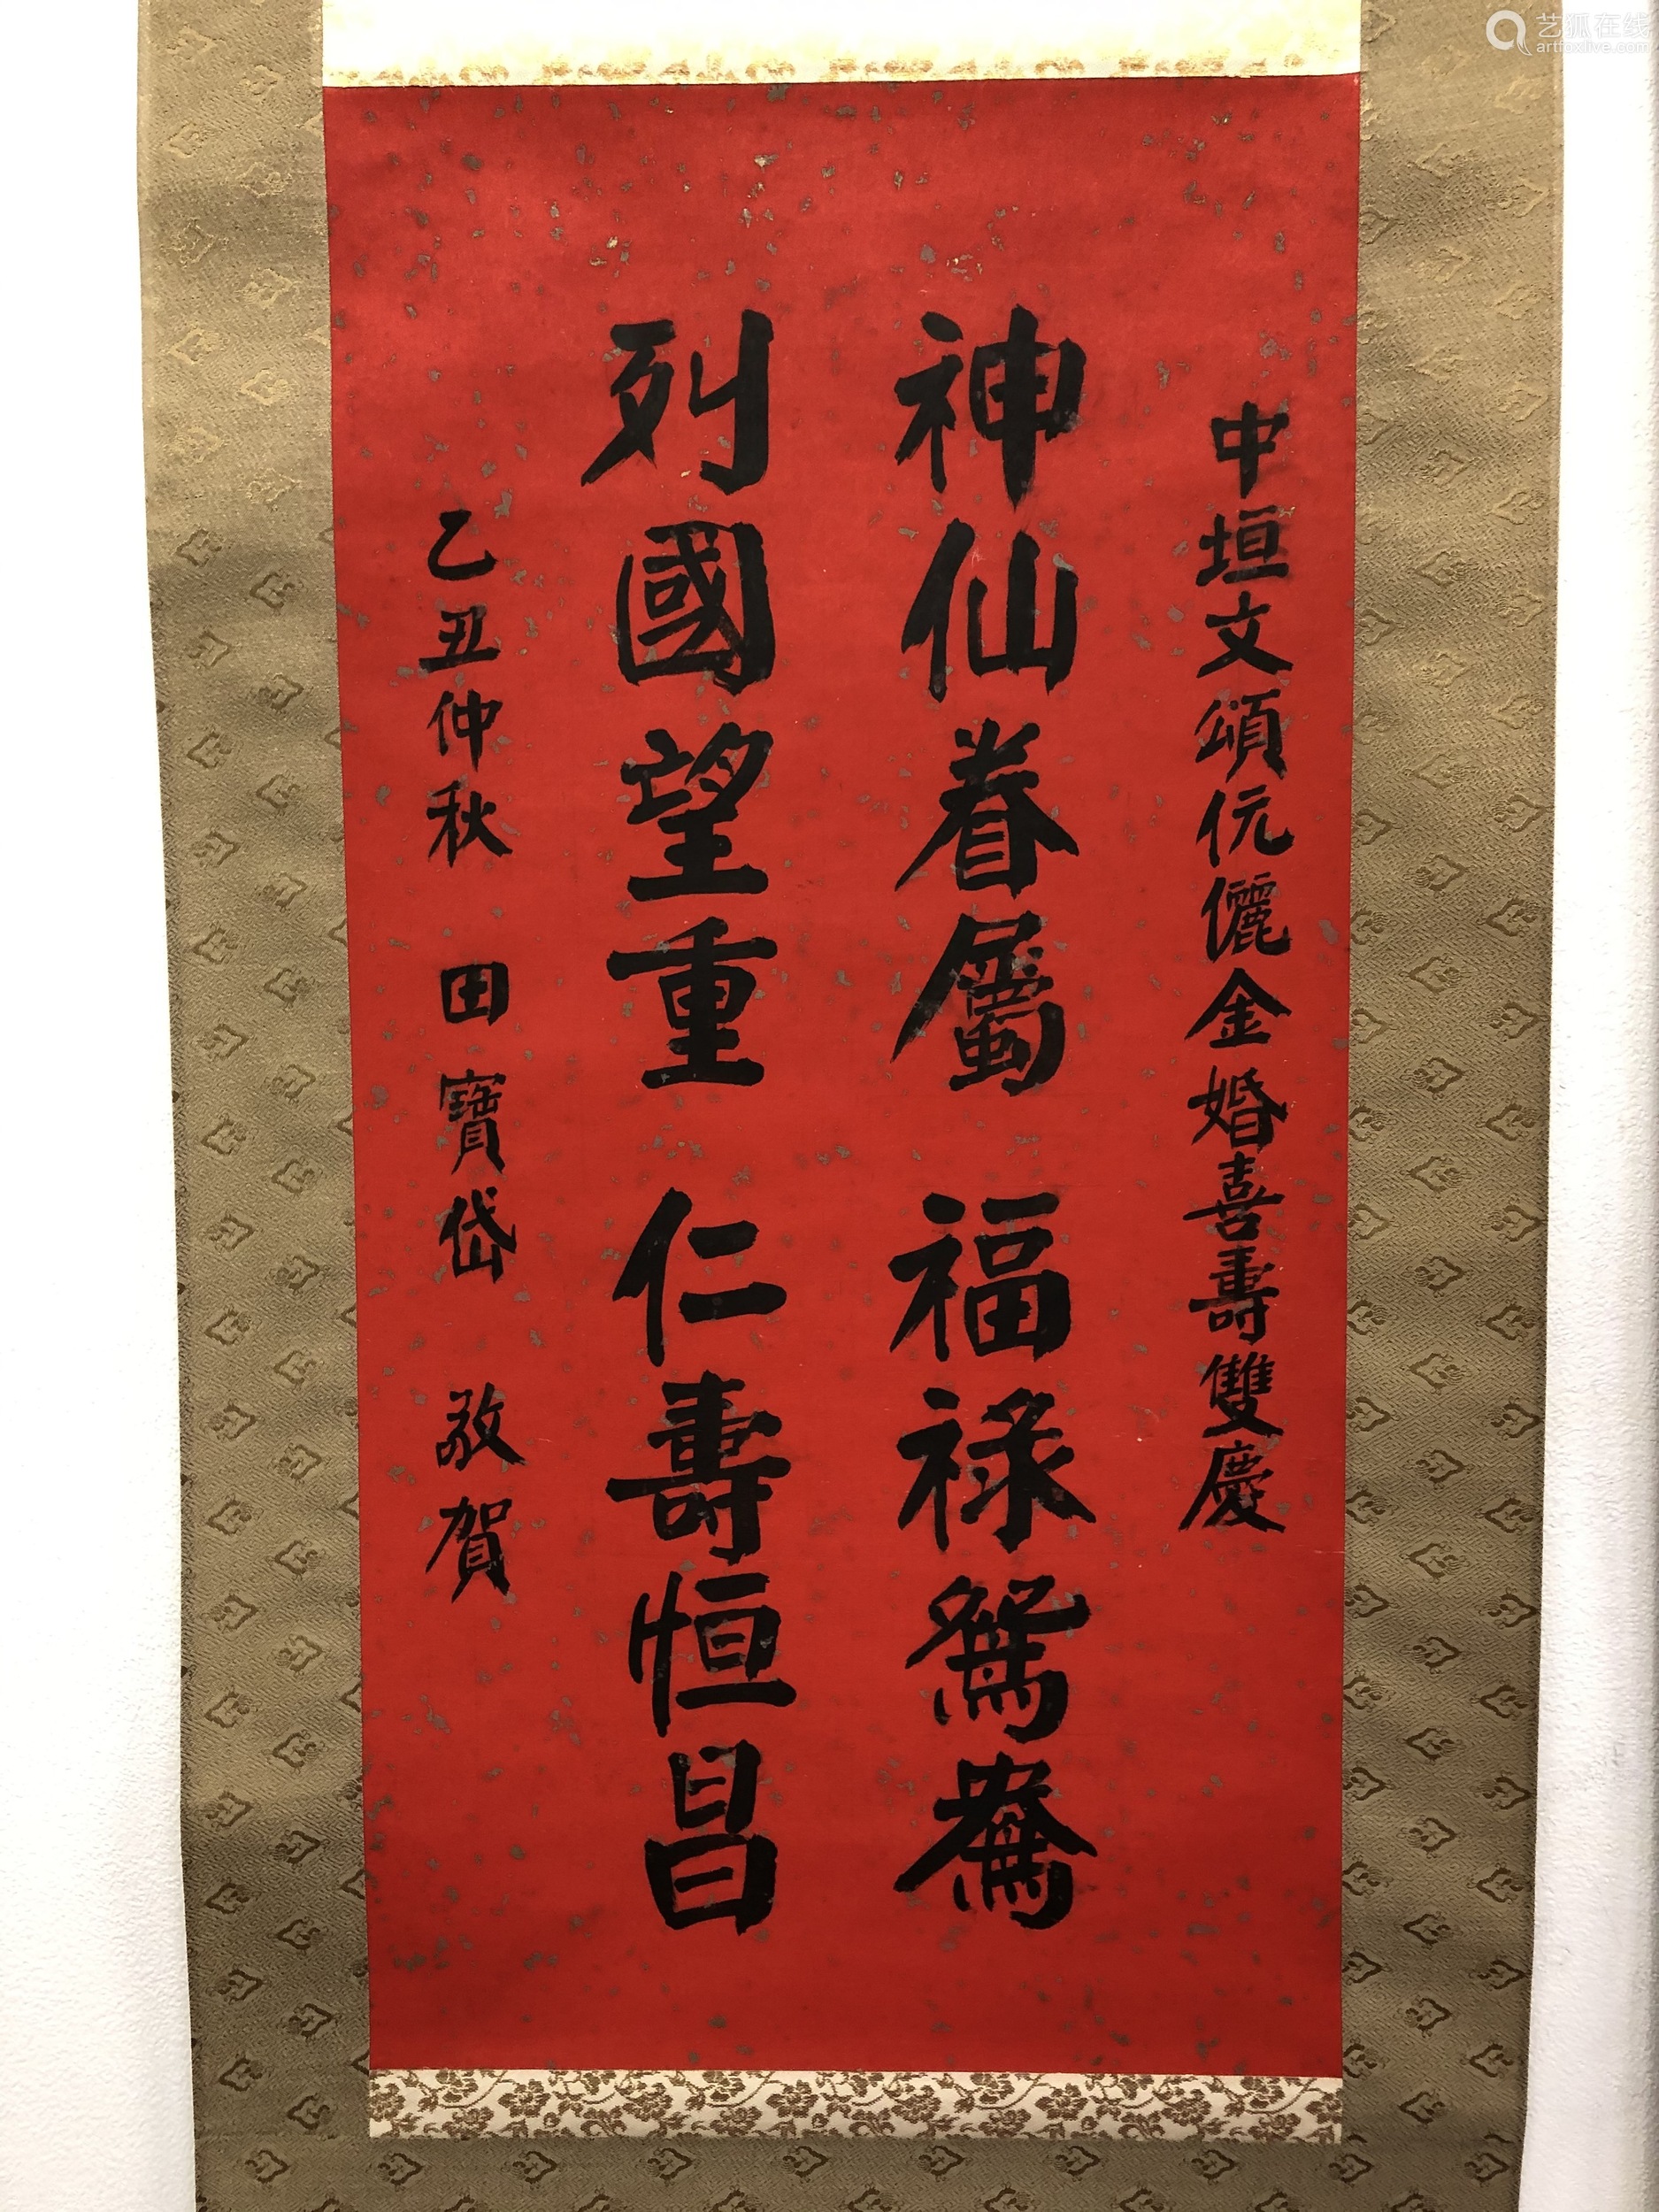 中垣文頌伉儷金婚喜壽雙慶
神仙眷屬 福祿鴛鴦
列國望重 仁壽恒昌
乙丑仲秋 田寶岱 敬賀
艺狐在线
artfoxlive.com